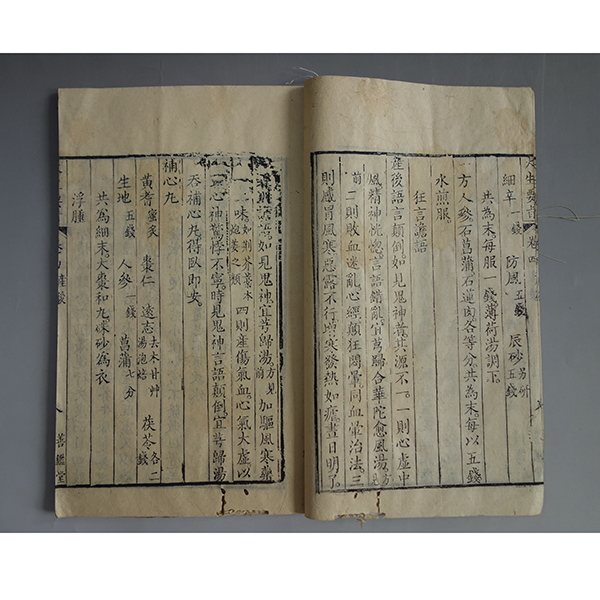 細辛一錢 防風五錢 辰砂另研五錢
共為末每服一錢薄荷湯調下
方人參石菖蒲石蓮肉各等分共為末每以五錢
水煎服
狂言譫語
產後語言顛倒如見鬼神者共源不一一則心虛中
風精神恍惚言語錯亂宜
前二則敗血迷亂心經顛狂悶暈同血暈治法三
則感冒風寒惡露不行增寒發熱如瘧晝日明了
語如見鬼神宜芎歸湯方見前加驅風寒藥
一二味如荊芥藁本炮姜之類四則產傷氣血心氣大虛以
心神驚悸不寧時見鬼神言語顛倒宜芎歸湯
吞補心丸得臥即安
補心丸
黃耆蜜炙 棗仁 遠志去木甘艸湯泡焙 茯苓各二錢
生地五錢 人參一錢 菖蒲七分
共為細末大棗和丸硃砂為衣
浮腫
善鑑堂